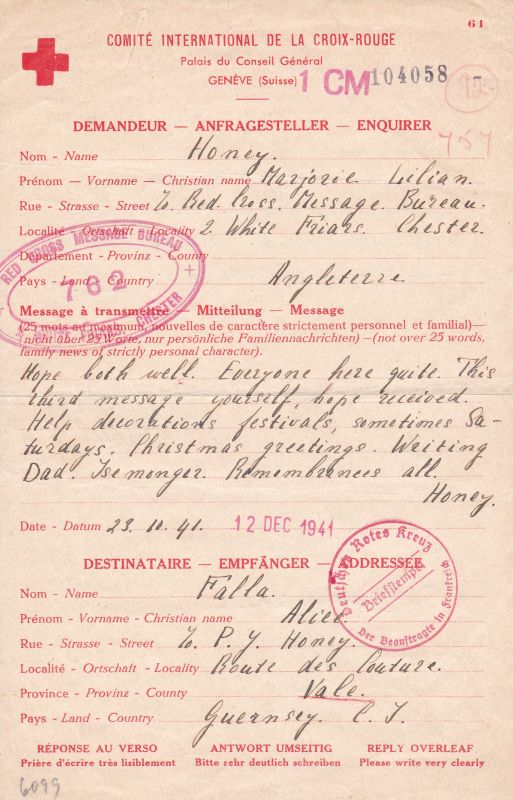 61
COMITÉ INTERNATIONAL DE LA CROIX-ROUGE
Palais du Conseil Général
GENÈVE (Suisse) 1 CM 104058
DEMANDEUR — ANFRAGESTELLER — ENQUIRER
Nom - Name Honey.
Prénom — Vorname — Christian name Marjorie Lilian.
Rue - Strasse - Street Red Cross Message Bureau.
Localité - Ortschaft - Locality 2 White Friars. Chester.
Département - Provinz - County
Pays - Land - Country Angleterre.
RED CROSS MESSAGE BUREAU
762
CHESTER
Message à transmettre — Mitteilung — Message
(25 mots au maximum, nouvelles de caractère strictement personnel et familial)—
(nicht über 25 Worte, nur persönliche Familiennachrichten) —(not over 25 words,
family news of strictly personal character).
Hope both well. Everyone here quite. This
third message yourself, hope received.
Help decorations festivals, sometimes Sa-
turdays. Christmas greetings. Writing
Dad. Isemonger. Remembrances all.
Honey.
Date - Datum 23. 10. 41. 12 DEC 1941
DESTINATAIRE — EMPFÄNGER — ADDRESSEE
Deutsches Rotes Kreuz
Briefstempel
Der Beauftragte in Frankreich
Nom - Name Falla.
Prénom - Vorname - Christian name Alice.
Rue - Strasse - Street P. J. Honey.
Localité - Ortschaft - Locality Route des Couture.
Province - Provinz - County Vale.
Pays - Land - Country Guernsey. C. I.
RÉPONSE AU VERSO ANTWORT UMSEITIG REPLY OVERLEAF
Prière d'écrire très lisiblement Bitte sehr deutlich schreiben Please write very clearly
6099